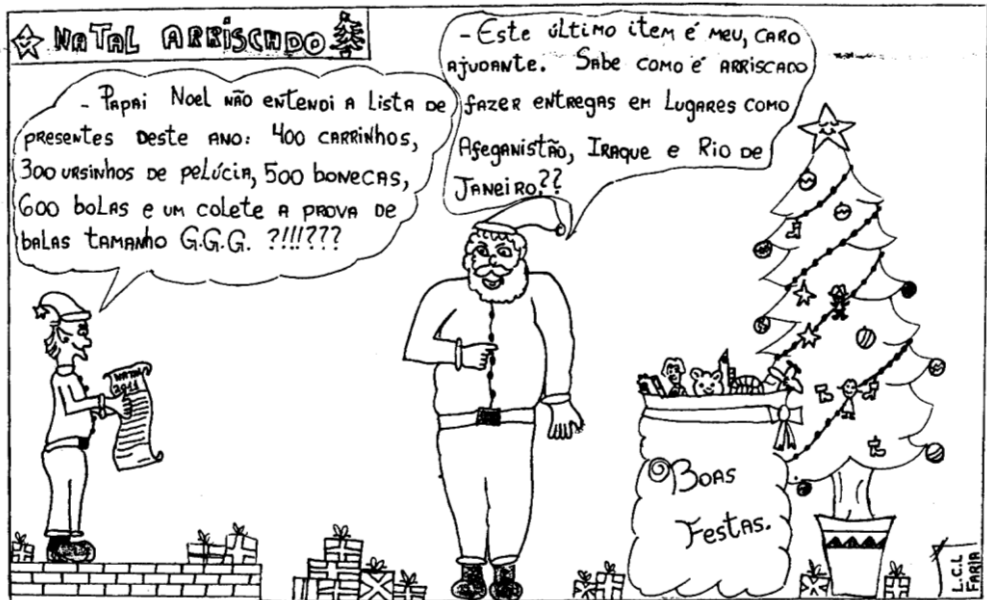 NATAL ARRISCADO
- Papai Noel não entendi a lista de
presentes deste ano: 400 carrinhos,
300 ursinhos de pelúcia, 500 bonecas,
600 bolas e um colete a prova de
balas tamanho G.G.G. ?!!!???
- Este último item é meu, caro
ajudante. Sabe como é arriscado
fazer entregas em lugares como
Afeganistão, Iraque e Rio de
Janeiro??
NATAL
2011
Boas
Festas.
L.C.L
FARIA